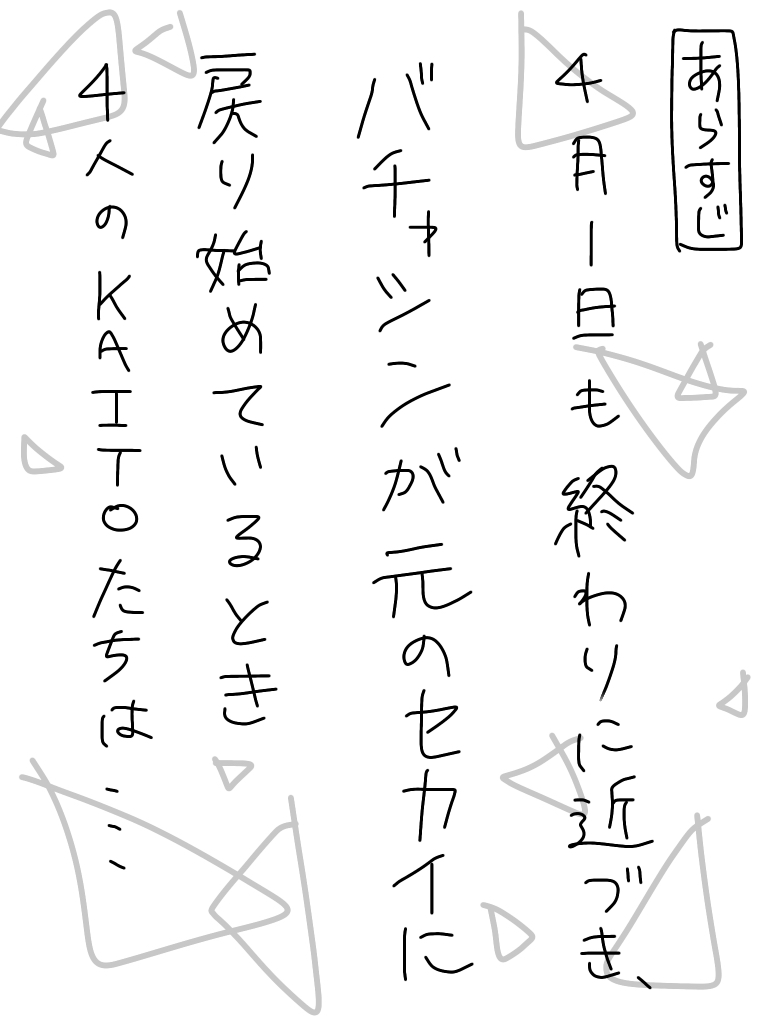 あらすじ
4月1日も終わりに近づき、
バチャシンが元のセカイに
戻り始めているとき
4人のKAITOたちは…